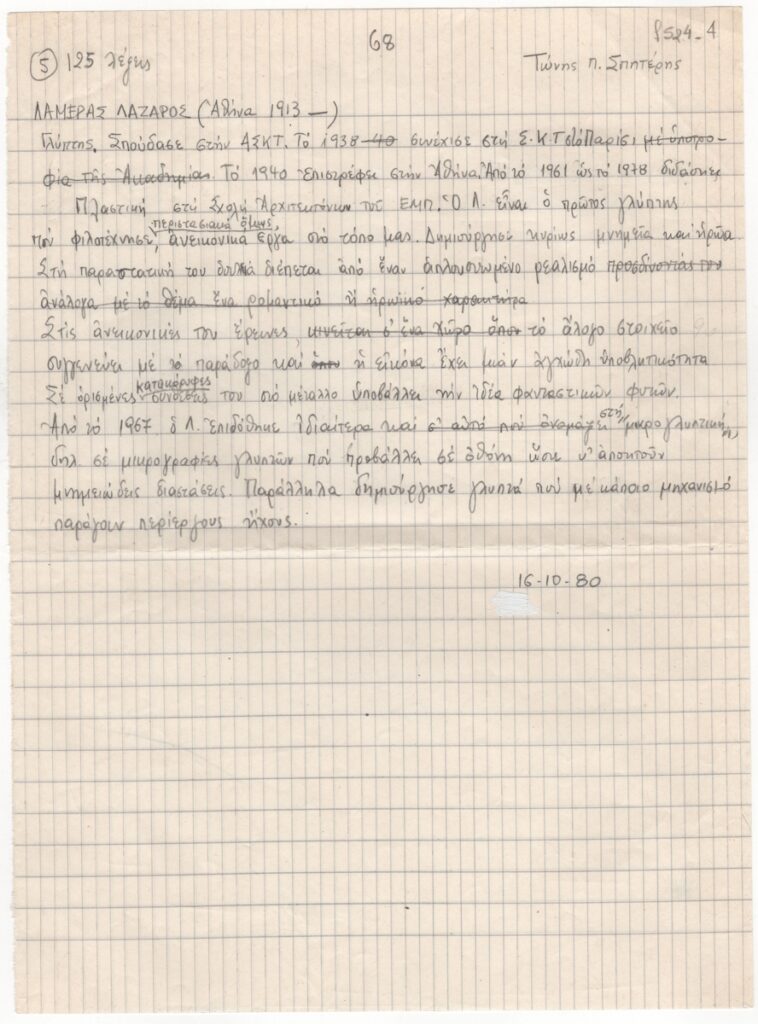 68
f524-4
⑤ 125 λέξεις
Τώνης π. Σπητέρης
ΛΑΜΕΡΑΣ ΛΑΖΑΡΟΣ (Ἀθήνα 1913 —)
Γλύπτης. Σπούδασε στήν ΑΣΚΤ. Τό 1938-40 συνέχισε στή Σ.Κ.Τ στό Παρίσι, μέ ὑποτρο-
φία τῆς Ἀκαδημίας. Τό 1940 ἐπιστρέφει στήν Ἀθήνα. Ἀπό τό 1961 ὥς τό 1978 διδάσκει
Πλαστική στή Σχολή Ἀρχιτεκτόνων τοῦ ΕΜΠ. Ὁ Λ. εἶναι ὁ πρῶτος γλύπτης
περιστασιακά ὅμως
πού φιλοτέχνησε, ἀνεικονικά ἔργα στό τόπο μας. Δημιούργησε κυρίως μνημεῖα καί ἡρῶα.
Στή παραστατική του δουλειά διέπεται ἀπό ἕναν ἁπλουστωμένο ρεαλισμό προσδίνοντάς του
ἀνάλογα μέ τό θέμα ἕνα ρομαντικό ἤ ἡρωικό χαρακτήρα
Στίς ἀνεικονικές του ἔρευνες, κινεῖται σ' ἕνα χῶρο ὅπου τό ἄλογο στοιχεῖο
συγγενεύει μέ τό παράδοξο καί ὅπου ἡ εἰκόνα ἔχει μιάν ἀγχώδη ὑποβλητικότητα
κατακόρυφες
Σέ ὁρισμένες συνθέσεις του στό μέταλλο ὑποβάλλει τήν ἰδέα φανταστικῶν φυτῶν.
στή
Ἀπό τό 1967, ὁ Λ. ἐπιδόθηκε ἰδιαίτερα καί σ' αὐτό πού ὀνομάζει μικρογλυπτική,
δηλ. σέ μικρογραφίες γλυπτῶν πού προβάλλει σέ ὀθόνη ὥστε ν' ἀποκτοῦν
μνημειώδεις διαστάσεις. Παράλληλα δημιούργησε γλυπτά πού μέ κάποιο μηχανισμό
παράγουν περίεργους ἤχους.
16-10-80